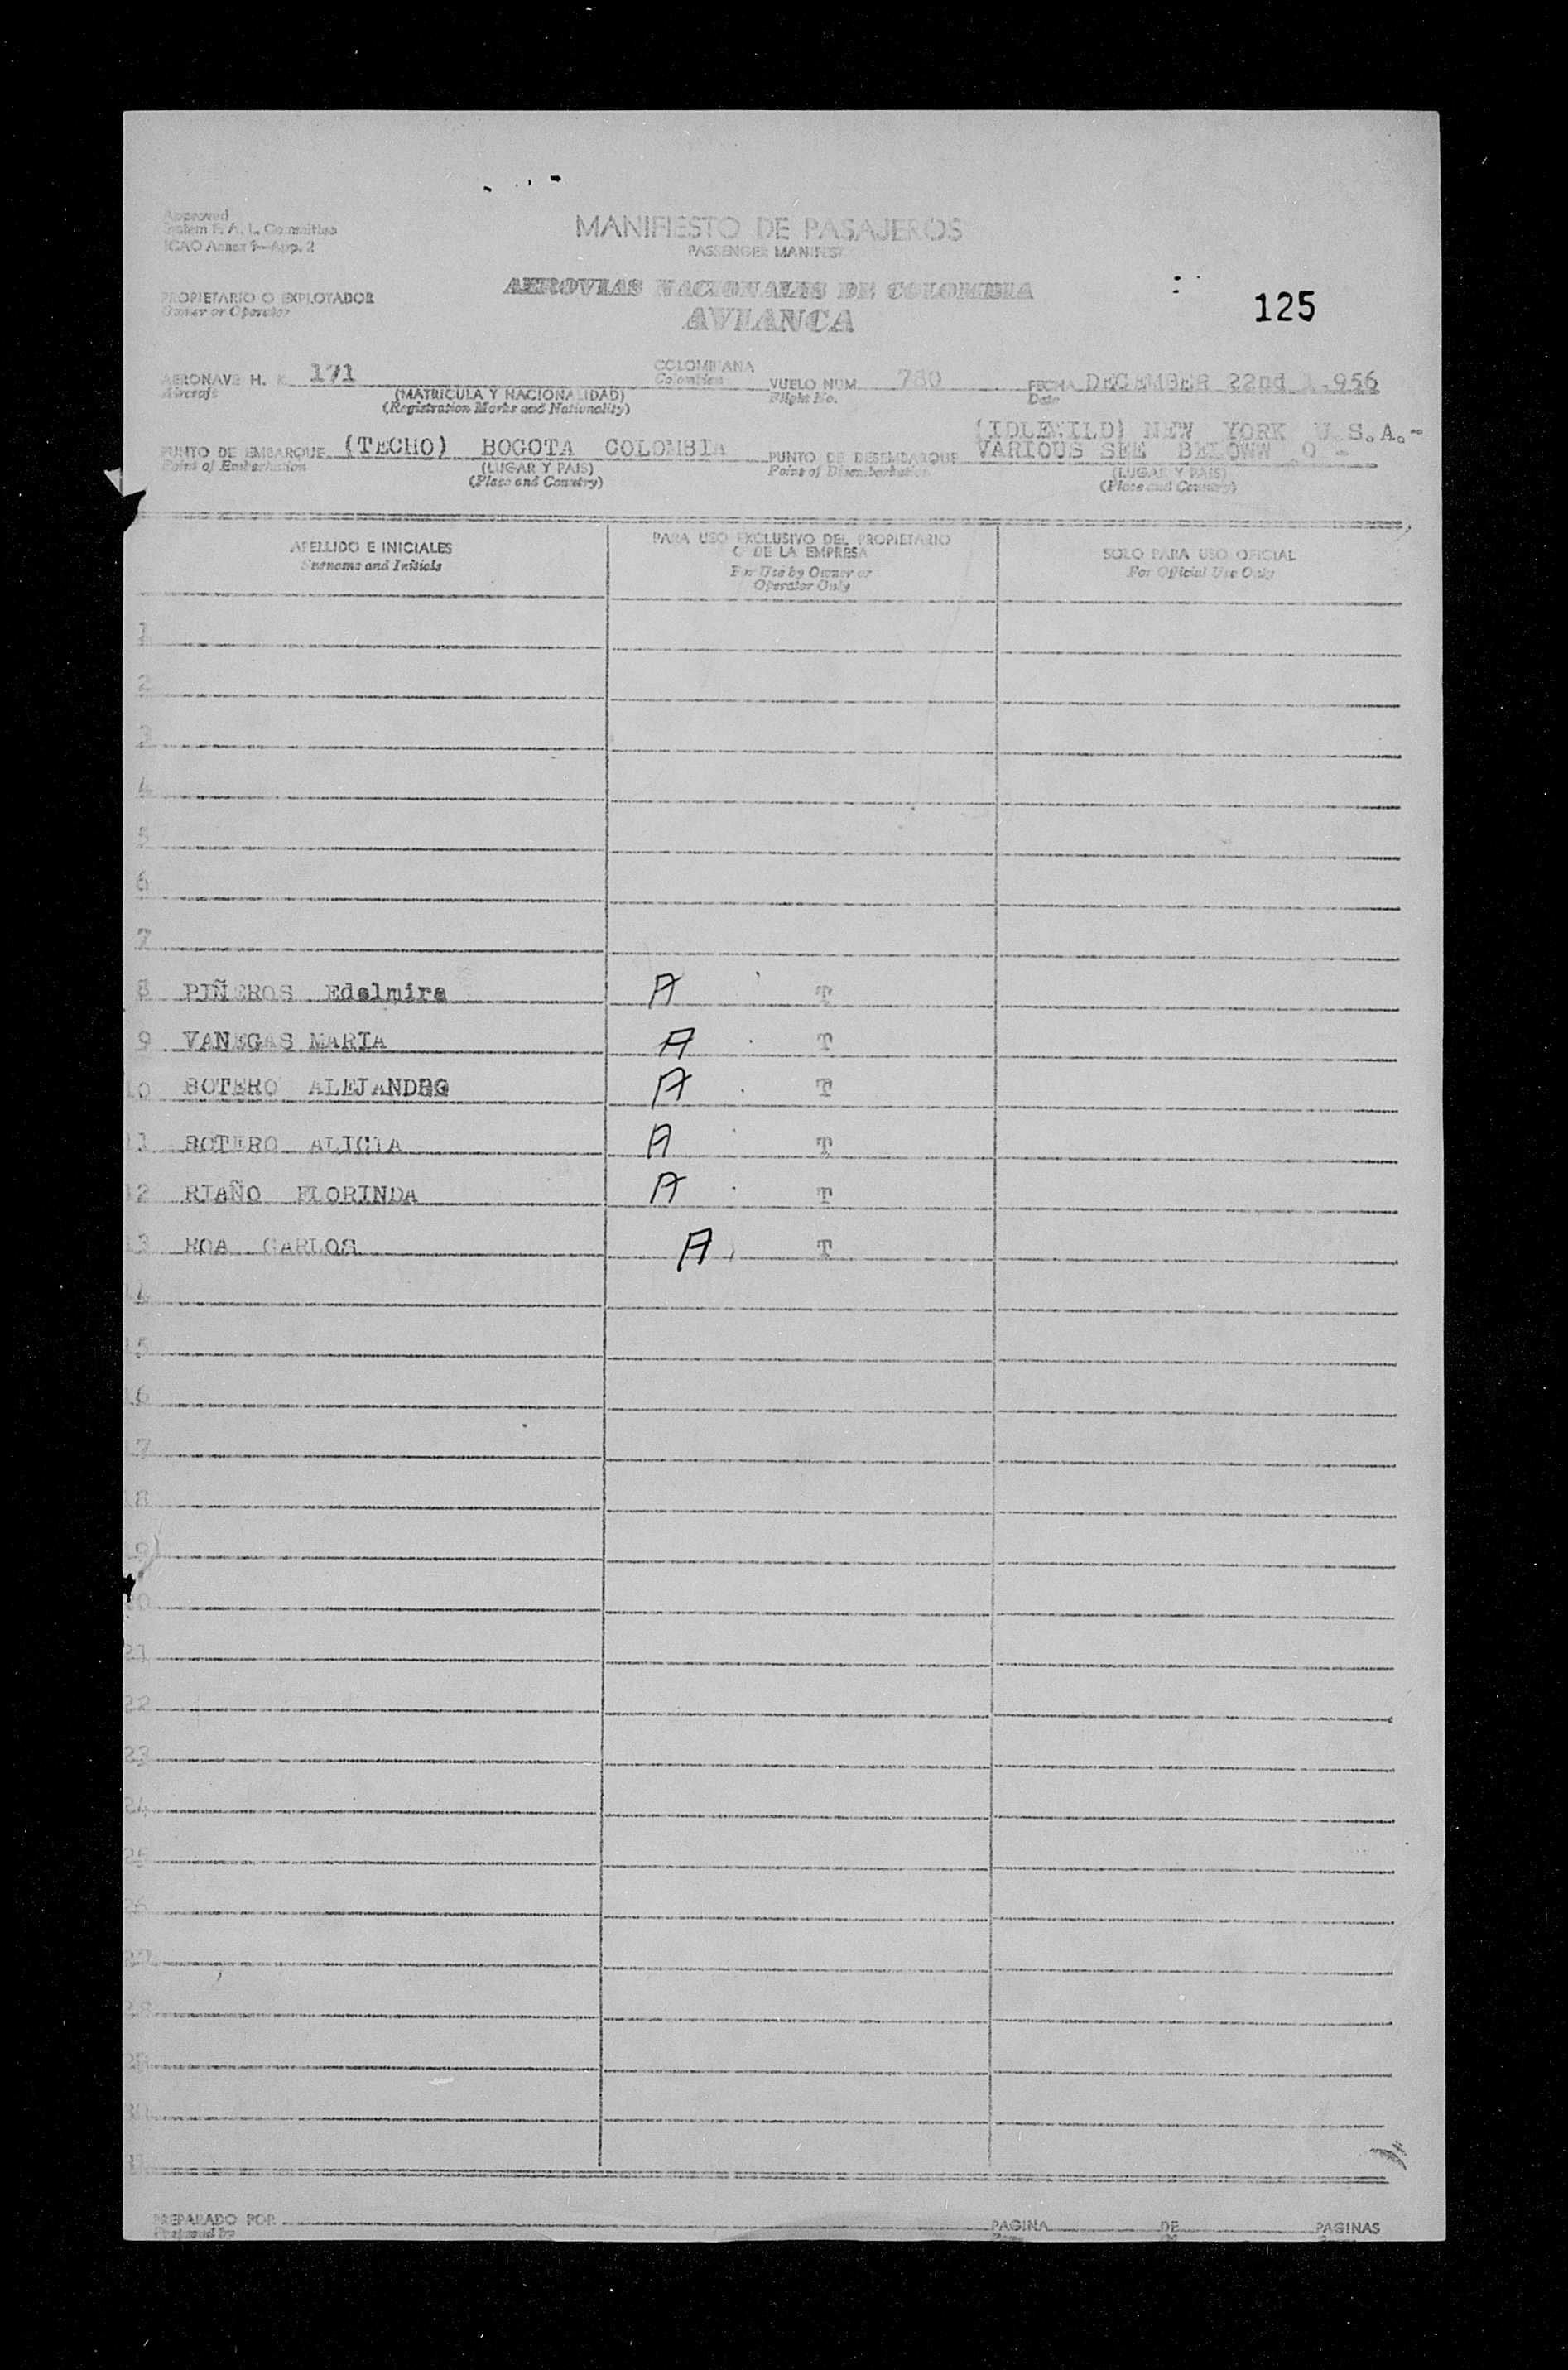 Approved
System F. A. L. Committee
ICAO Annex 9—App. 2
MANIFIESTO DE PASAJEROS
PASSENGER MANIFEST
PROPIETARIO O EXPLOTADOR
Owner or Operator
AEROVIAS NACIONALES DE COLOMBIA
AVIANCA
125
AERONAVE H. K. 171 COLOMBIANA VUELO NUM. 780 FECHA DECEMBER 22nd 1.956
Aircraft (MATRICULA Y NACIONALIDAD) Colombian Flight No. Date
(Registration Marks and Nationality)
(IDLEWILD) NEW YORK U.S.A.-
PUNTO DE EMBARQUE (TECHO) BOGOTA COLOMBIA PUNTO DE DESEMBARQUE VARIOUS SEE BELOWW O -
Point of Embarkation (LUGAR Y PAIS) Point of Disembarkation (LUGAR Y PAIS)
(Place and Country) (Place and Country)
APELLIDO E INICIALES
Surname and Initials
PARA USO EXCLUSIVO DEL PROPIETARIO
O DE LA EMPRESA
For Use by Owner or
Operator Only
SOLO PARA USO OFICIAL
For Official Use Only
1
2
3
4
5
6
7
8 PIÑEROS Edelmira A T
9 VANEGAS MARIA A T
10 BOTERO ALEJANDRO A T
11 BOTERO ALICIA A T
12 RIAÑO FLORINDA A T
13 ROA CARLOS A T
14
15
16
17
18
19
20
21
22
23
24
25
26
27
28
29
30
31
PREPARADO POR PAGINA DE PAGINAS
Prepared by